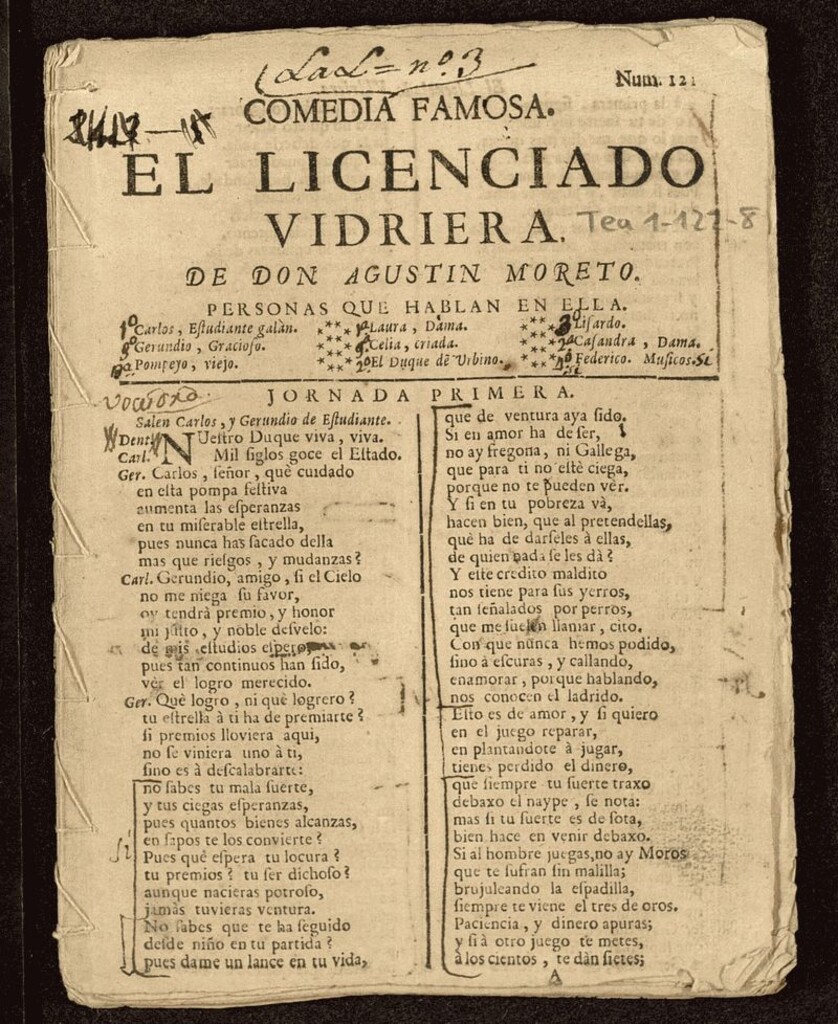 LaL= nº. 3
Num. 121
COMEDIA FAMOSA.
EL LICENCIADO
VIDRIERA.
Tea 1-122-8
DE DON AGUSTIN MORETO.
PERSONAS QUE HABLAN EN ELLA.
1º Carlos, Eſtudiante galàn. Laura, Dama. Liſardo.
Gerundio, Gracioſo. Celia, criada. Caſandra, Dama.
Pompeyo, viejo. 2º El Duque de Vrbino. Federico. Muſicos. Si
JORNADA PRIMERA.
Salen Carlos, y Gerundio de Eſtudiante.
Dent. NUeſtro Duque viva, viva.
Carl. Mil ſiglos goce el Eſtado.
Ger. Carlos, ſeñor, què cuidado
en eſta pompa feſtiva
aumenta las eſperanzas
en tu miſerable eſtrella,
pues nunca has ſacado della
mas que rieſgos, y mudanzas?
Carl. Gerundio, amigo, ſi el Cielo
no me niega ſu favor,
oy tendrà premio, y honor
mi juſto, y noble deſvelo:
de mis eſtudios eſpero,
pues tan continuos han ſido,
ver el logro merecido.
Ger. Què logro, ni què logrero?
tu eſtrella à ti ha de premiarte?
ſi premios lloviera aqui,
no ſe viniera uno à ti,
ſino es à deſcalabrarte:
no ſabes tu mala ſuerte,
y tus ciegas eſperanzas,
pues quantos bienes alcanzas,
en ſapos te los convierte?
Si
Pues què eſpera tu locura?
tu premios? tu ſer dichoſo?
aunque nacieras potroſo,
jamàs tuvieras ventura.
No ſabes que te ha ſeguido
deſde niño en tu partida?
pues dame un lance en tu vida,
que de ventura aya ſido.
Si en amor ha de ſer,
no ay fregona, ni Gallega,
que para ti no eſtè ciega,
porque no te pueden ver.
Y ſi en tu pobreza và,
hacen bien, que al pretendellas,
què ha de darſeles à ellas,
de quien nada ſe les dà?
Y eſte credito maldito
nos tiene para ſus yerros,
tan ſeñalados por perros,
que me ſuelen llamar, cito.
Con que nunca hemos podido,
ſino à eſcuras, y callando,
enamorar, porque hablando,
nos conocen el ladrido.
Eſto es de amor, y ſi quiero
en el juego reparar,
en plantandote à jugar,
tienes perdido el dinero,
que ſiempre tu ſuerte traxo
debaxo el naype, ſe nota:
mas ſi tu ſuerte es de ſota,
bien hace en venir debaxo.
Si al hombre juegas, no ay Moros
que te ſufran ſin malilla;
brujuleando la eſpadilla,
ſiempre te viene el tres de oros.
Paciencia, y dinero apuras;
y ſi à otro juego te metes,
à los cientos, te dàn ſietes;
A